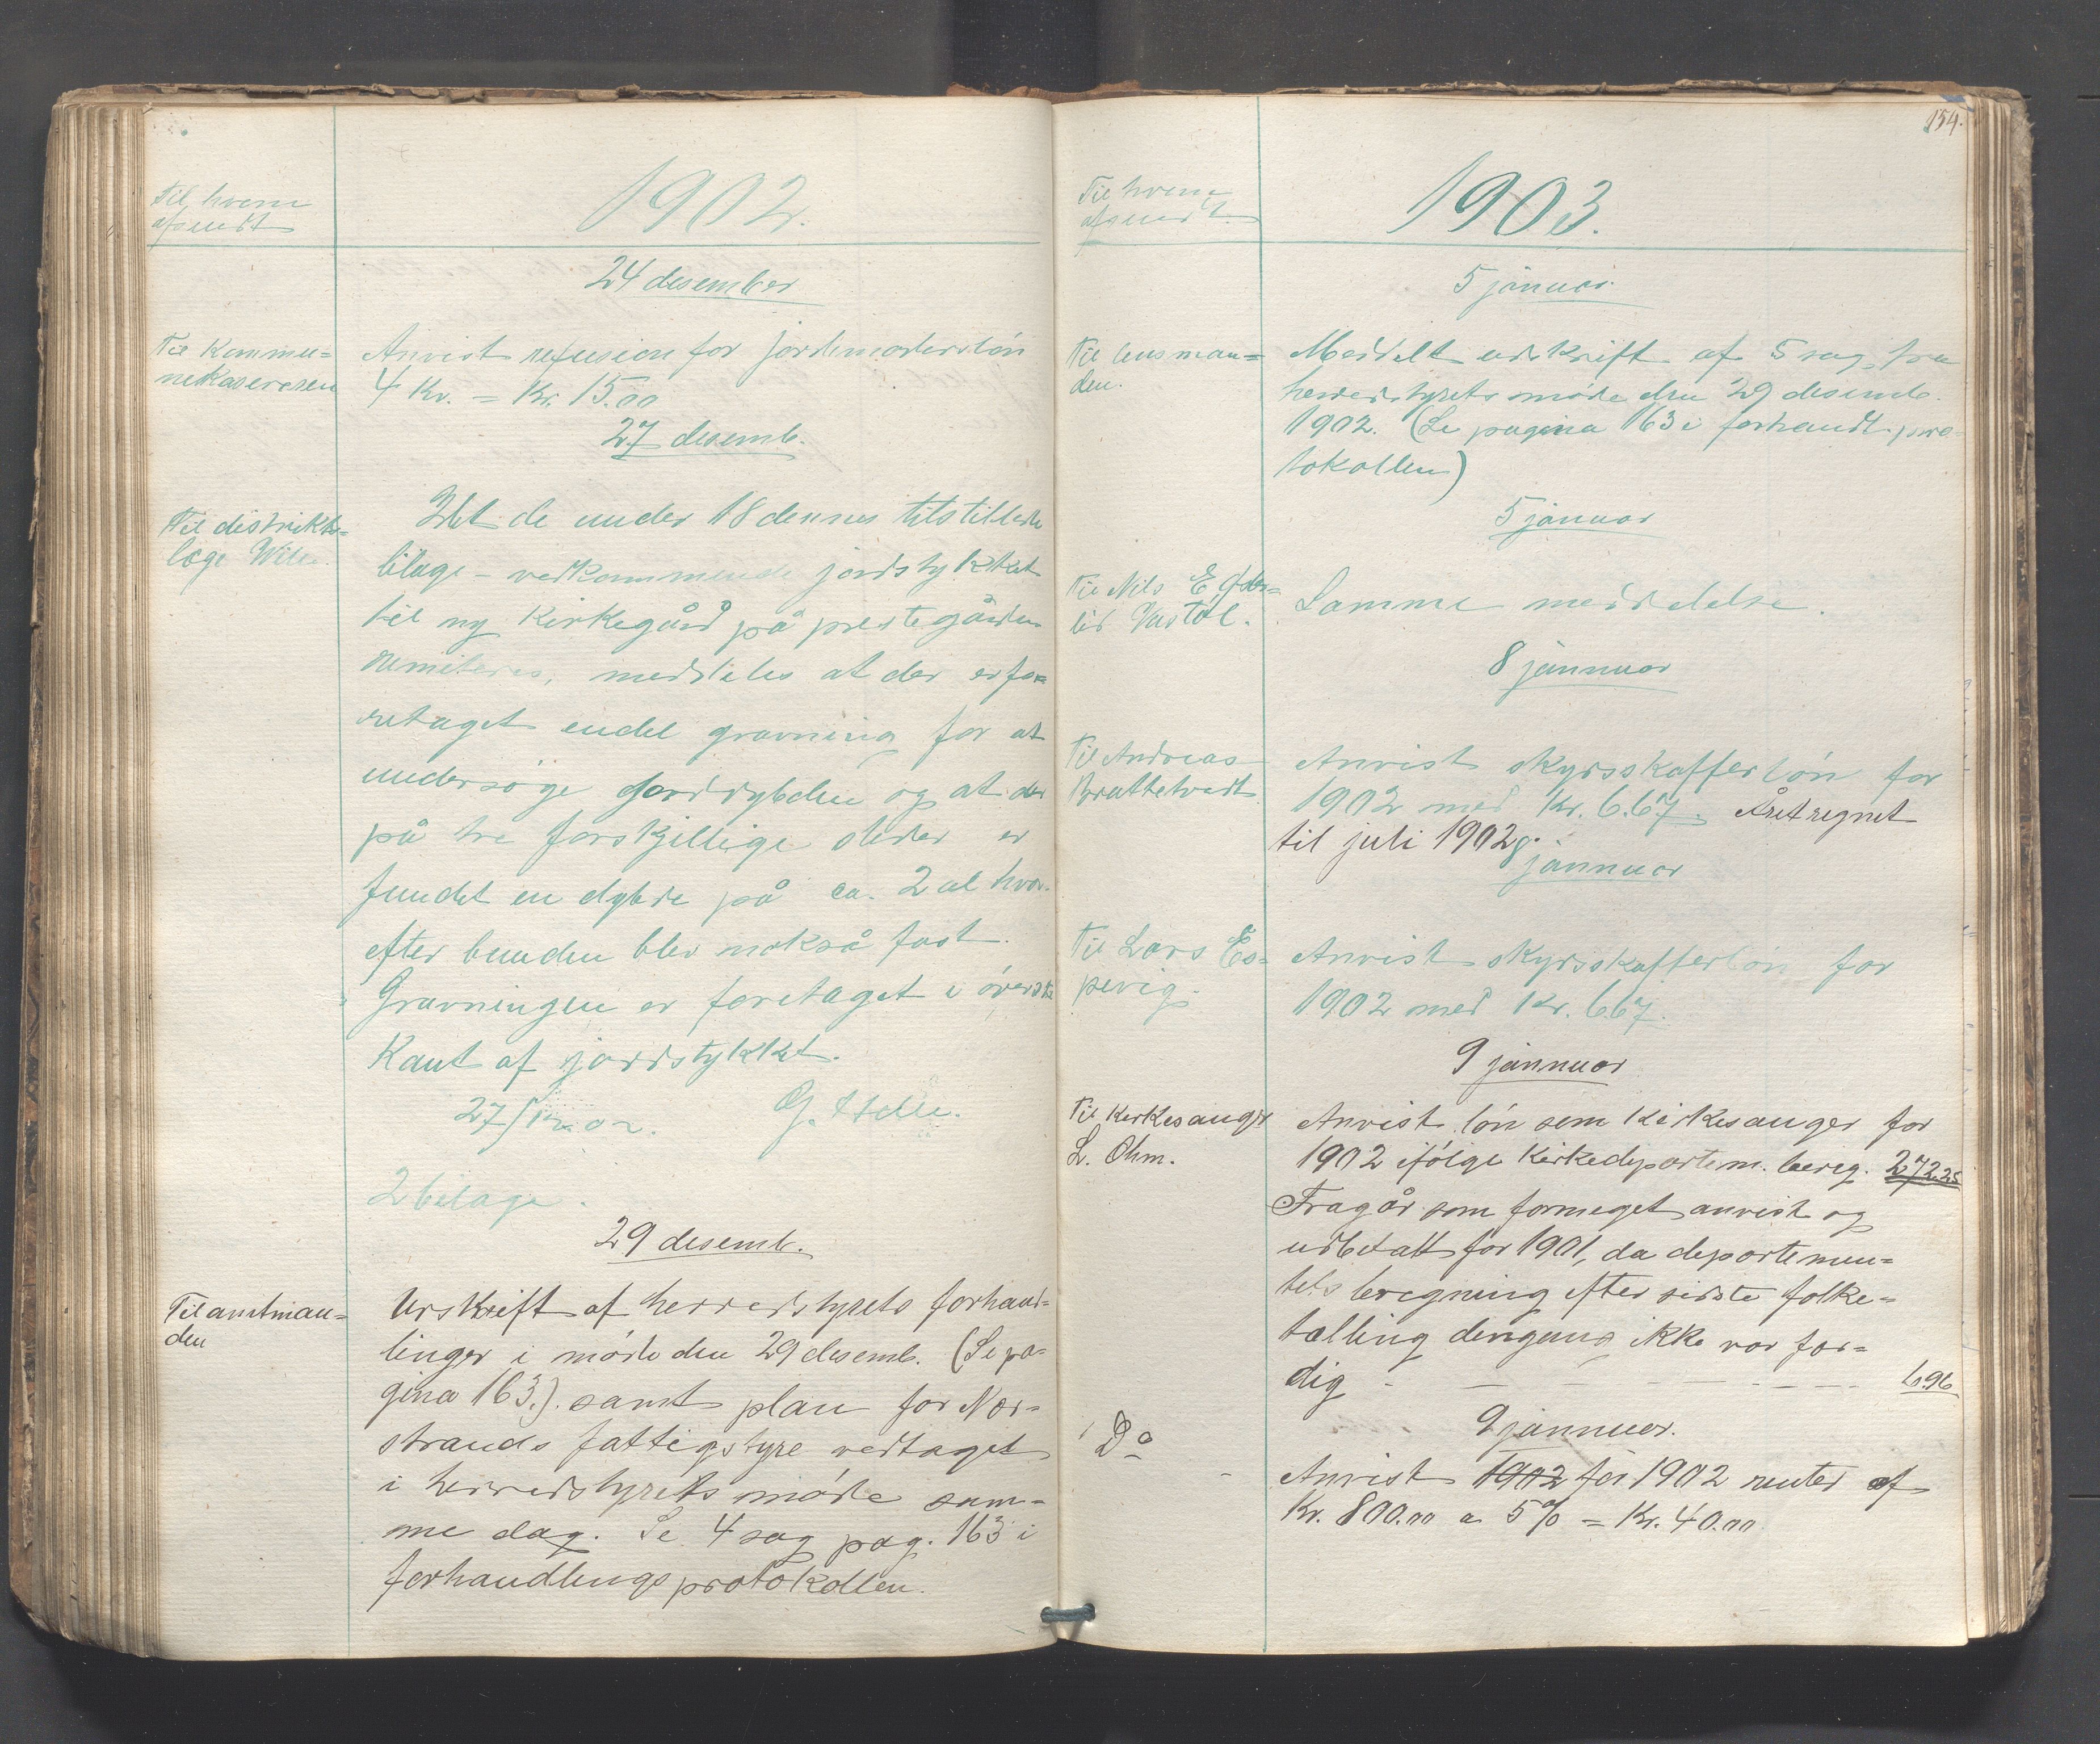 Til hvem
afsendt
1902.
24 desember
Til Kommu=
nekasereren
Anvist refusion for jordemoderslón
4 Kv. = Kr. 15.00
27 desemb.
Til distrikts=
læge
Idet de under 18 dennes tilstillede
bilage - vedkommende jordstykket
til ny Kirkegård på prestegården
remiteres, meddeles at der er fo=
retaget endel gravning for at
undersöge jorddybden og at der
på tre forskjellige steder er
fundet en dybde på ca. 2 al hvor-
efter bunden blev nokså fast.
Gravningen er foretaget i överste
Kant af jordstykket.
27/12 02. G.
2 bilage.
29 desemb.
Til amtman=
den
Udskrift af herredstyrets forhand=
linger i möde den 29 desemb. (Se pa=
gina 163.). samt plan for Nær=
strands fattigstyre vedtaget
i herredstyrets möde sam=
me dag. Se 4 sag pag. 163 i
forhandlingsprotokollen.
154.
Til hvem
afsendt.
1903.
5 januar.
Til lensman=
den.
Meddelt udskrift af 5 sag, fra
herredstyrets möde den 29 desemb.
1902. (Se pagina 163 i forhandl. pro-
tokollen)
5 januar
Til Nils E.
Samme meddelelse.
8 jannuar
Til Andreas
Brattetvedt
Anvist skydsskafferlón for
1902 med Kr. 6.67. Året regnet
til juli 1902.
8 jannuar
Til Lars Es=
pevig.
Anvist skydsskafferlón for
1902 med Kr. 6.67.
9 jannuar
Til Kirkesanger
L. Ohm.
Anvist lón som Kirkesanger for
1902 ifólge Kirkedepartem. bereg. 272.25
Fragår som formeget anvist og
udbetalt for 1901, da departemen=
tets beregning efter sidste folke=
tælling dengang ikke var fær=
dig - - - - - - 6.96
9 jannuar.
Do
Anvist 1902 for 1902 renter af
Kr. 800.00 a 5% = Kr. 40.00